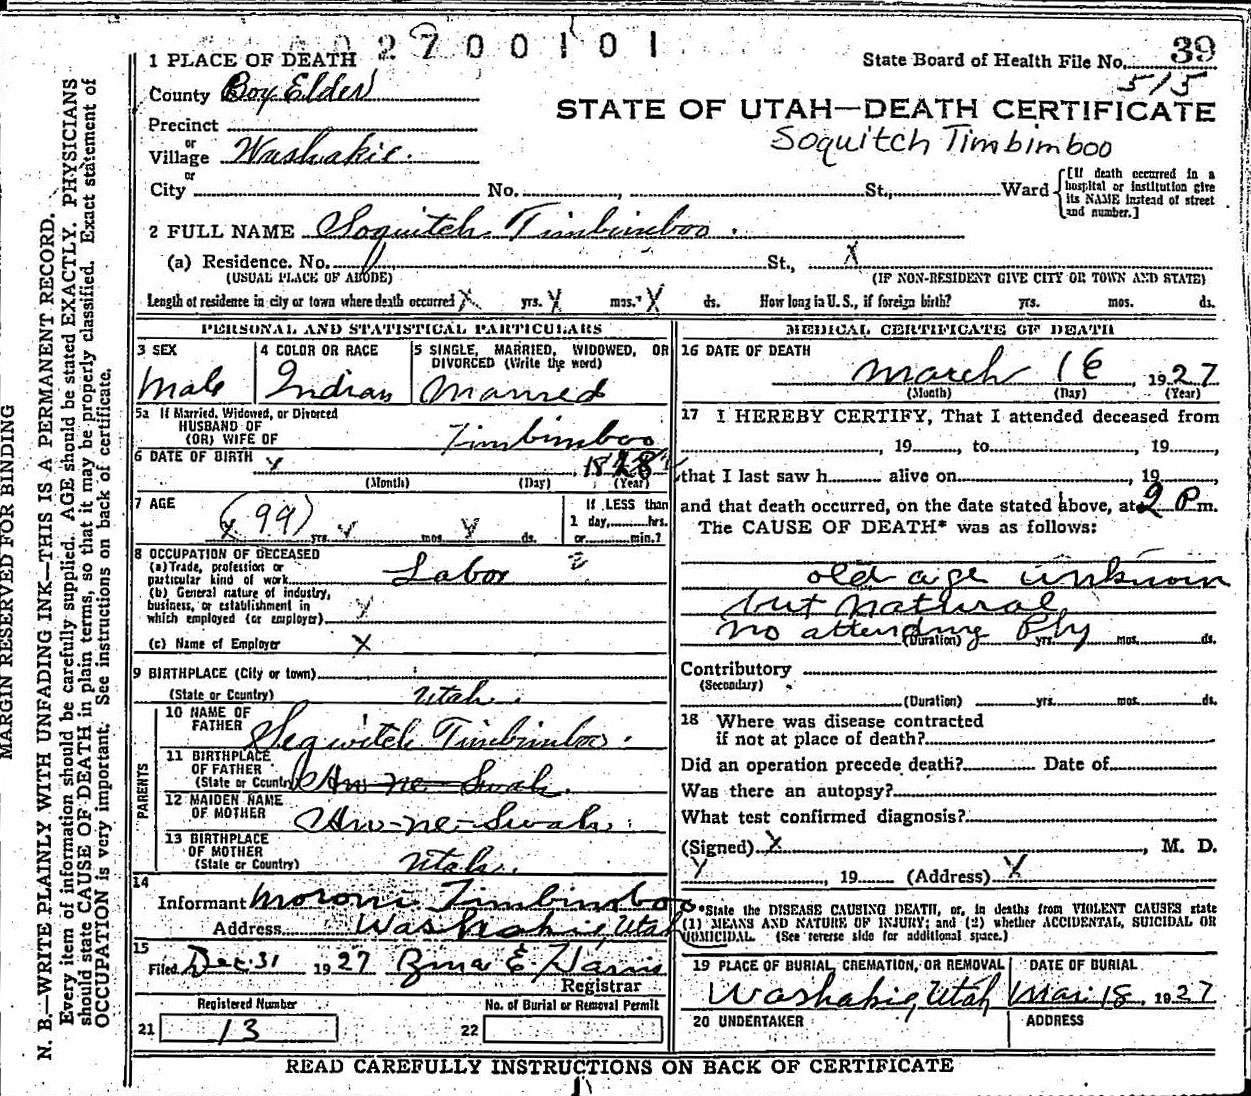 02700101
1 PLACE OF DEATH
State Board of Health File No. 39
515
County Box Elder
STATE OF UTAH—DEATH CERTIFICATE
Precinct
or
Village Washakie.
Soquitch Timbimboo
or
City No. St., Ward
[If death occurred in a hospital or institution give its NAME instead of street and number.]
2 FULL NAME Soquitch Timbimboo.
(a) Residence. No. St., X
(USUAL PLACE OF ABODE) (IF NON-RESIDENT GIVE CITY OR TOWN AND STATE)
Length of residence in city or town where death occurred X yrs. X mos. X ds. How long in U.S., if foreign birth? yrs. mos. ds.
PERSONAL AND STATISTICAL PARTICULARS
3 SEX
Male
4 COLOR OR RACE
Indian
5 SINGLE, MARRIED, WIDOWED, OR
DIVORCED (Write the word)
Married
5a If Married, Widowed, or Divorced
HUSBAND OF
(OR) WIFE OF Timbimboo
6 DATE OF BIRTH 1828
(Month) (Day) (Year)
7 AGE
(99)
X yrs. X mos. X ds.
If LESS than
1 day, hrs.
or min.?
8 OCCUPATION OF DECEASED
(a) Trade, profession or
particular kind of work Labor
(b) General nature of industry,
business, or establishment in
which employed (or employer) X
(c) Name of Employer X
9 BIRTHPLACE (City or town)
(State or Country) Utah.
PARENTS
10 NAME OF
FATHER Seqwitch Timbimboo.
11 BIRTHPLACE
OF FATHER
(State or Country)
12 MAIDEN NAME
OF MOTHER
13 BIRTHPLACE
OF MOTHER
(State or Country) Utah.
14
Informant Moroni Timbimboo
Address Washakie, Utah
15
Filed Dec 31 1927 E. Harris
Registrar
Registered Number No. of Burial or Removal Permit
21 13 22
MEDICAL CERTIFICATE OF DEATH
16 DATE OF DEATH
March 16, 1927
(Month) (Day) (Year)
17 I HEREBY CERTIFY, That I attended deceased from
, 19 , to , 19 ,
that I last saw h alive on , 19 ,
and that death occurred, on the date stated above, at 2 P m.
The CAUSE OF DEATH* was as follows:
old age unknown
but natural
no attending Phy
(Duration) yrs. mos. ds.
Contributory
(Secondary)
(Duration) yrs. mos. ds.
18 Where was disease contracted
if not at place of death?
Did an operation precede death? Date of
Was there an autopsy?
What test confirmed diagnosis?
(Signed) X , M. D.
X , 19 (Address) X
*State the DISEASE CAUSING DEATH, or, in deaths from VIOLENT CAUSES state
(1) MEANS AND NATURE OF INJURY; and (2) whether ACCIDENTAL, SUICIDAL OR
HOMICIDAL. (See reverse side for additional space.)
19 PLACE OF BURIAL, CREMATION, OR REMOVAL DATE OF BURIAL
Washakie, Utah Mar. 18, 1927
20 UNDERTAKER ADDRESS
READ CAREFULLY INSTRUCTIONS ON BACK OF CERTIFICATE
MARGIN RESERVED FOR BINDING
N. B.—WRITE PLAINLY WITH UNFADING INK—THIS IS A PERMANENT RECORD.
Every item of information should be carefully supplied. AGE should be stated EXACTLY. PHYSICIANS
should state CAUSE OF DEATH in plain terms, so that it may be properly classified. Exact statement of
OCCUPATION is very important. See instructions on back of certificate.